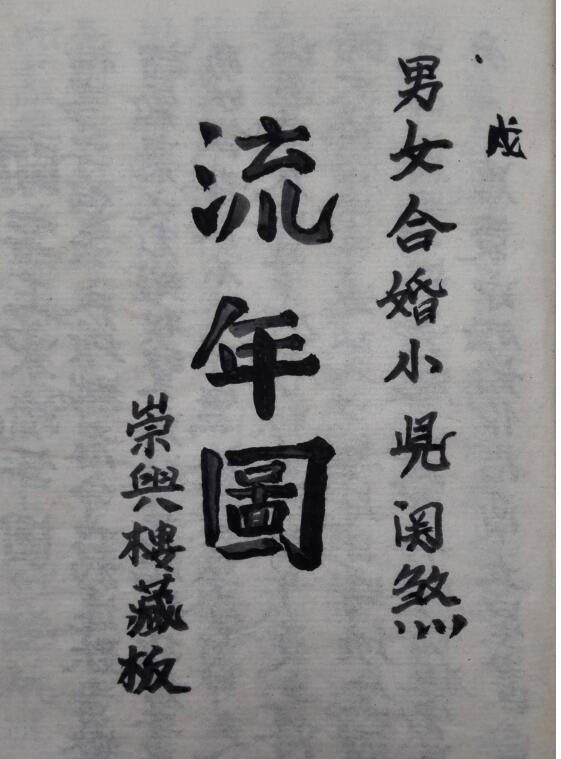 戌
男女合婚小児関煞
流年圖
崇興樓藏板